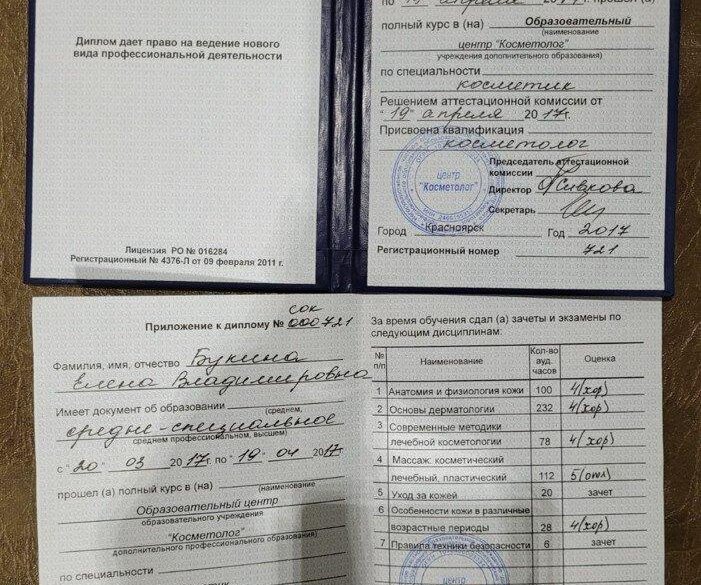 Диплом дает право на ведение нового
вида профессиональной деятельности
Лицензия РО № 016284
Регистрационный № 4376-Л от 09 февраля 2011 г.
по "19" апреля 2017г. прошел (а)
полный курс в (на) Образовательный
(наименование
центр "Косметолог"
учреждения дополнительного образования)
по специальности
косметик
Решением аттестационной комиссии от
"19" апреля 2017г.
Присвоена квалификация
косметолог
Председатель аттестационной
комиссии
Директор Сивкова
Секретарь
центр
"Косметолог"
Город Красноярск Год 2017
Регистрационный номер 721
Приложение к диплому № 000721
СОК
Фамилия, имя, отчество Букина
Елена Владимировна
Имеет документ об образовании
(среднем,
средне-специальное
среднем профессиональном, высшем)
с "20" 03 2017г. по "19" 04 2017г.
прошел (а) полный курс в (на)
(наименование
Образовательный центр
образовательного учреждения
"Косметолог"
дополнительного профессионального образования)
по специальности
За время обучения сдал (а) зачеты и экзамены по
следующим дисциплинам:
№ п/п Наименование Кол-во ауд. часов Оценка
1 Анатомия и физиология кожи 100 4(хор)
2 Основы дерматологии 232 4(хор)
3 Современные методики
лечебной косметологии 78 4(хор)
4 Массаж: косметический
лечебный, пластический 112 5(отл)
5 Уход за кожей 20 зачет
6 Особенности кожи в различные
возрастные периоды 28 4(хор)
7 Правила техники безопасности 6 зачет
центр